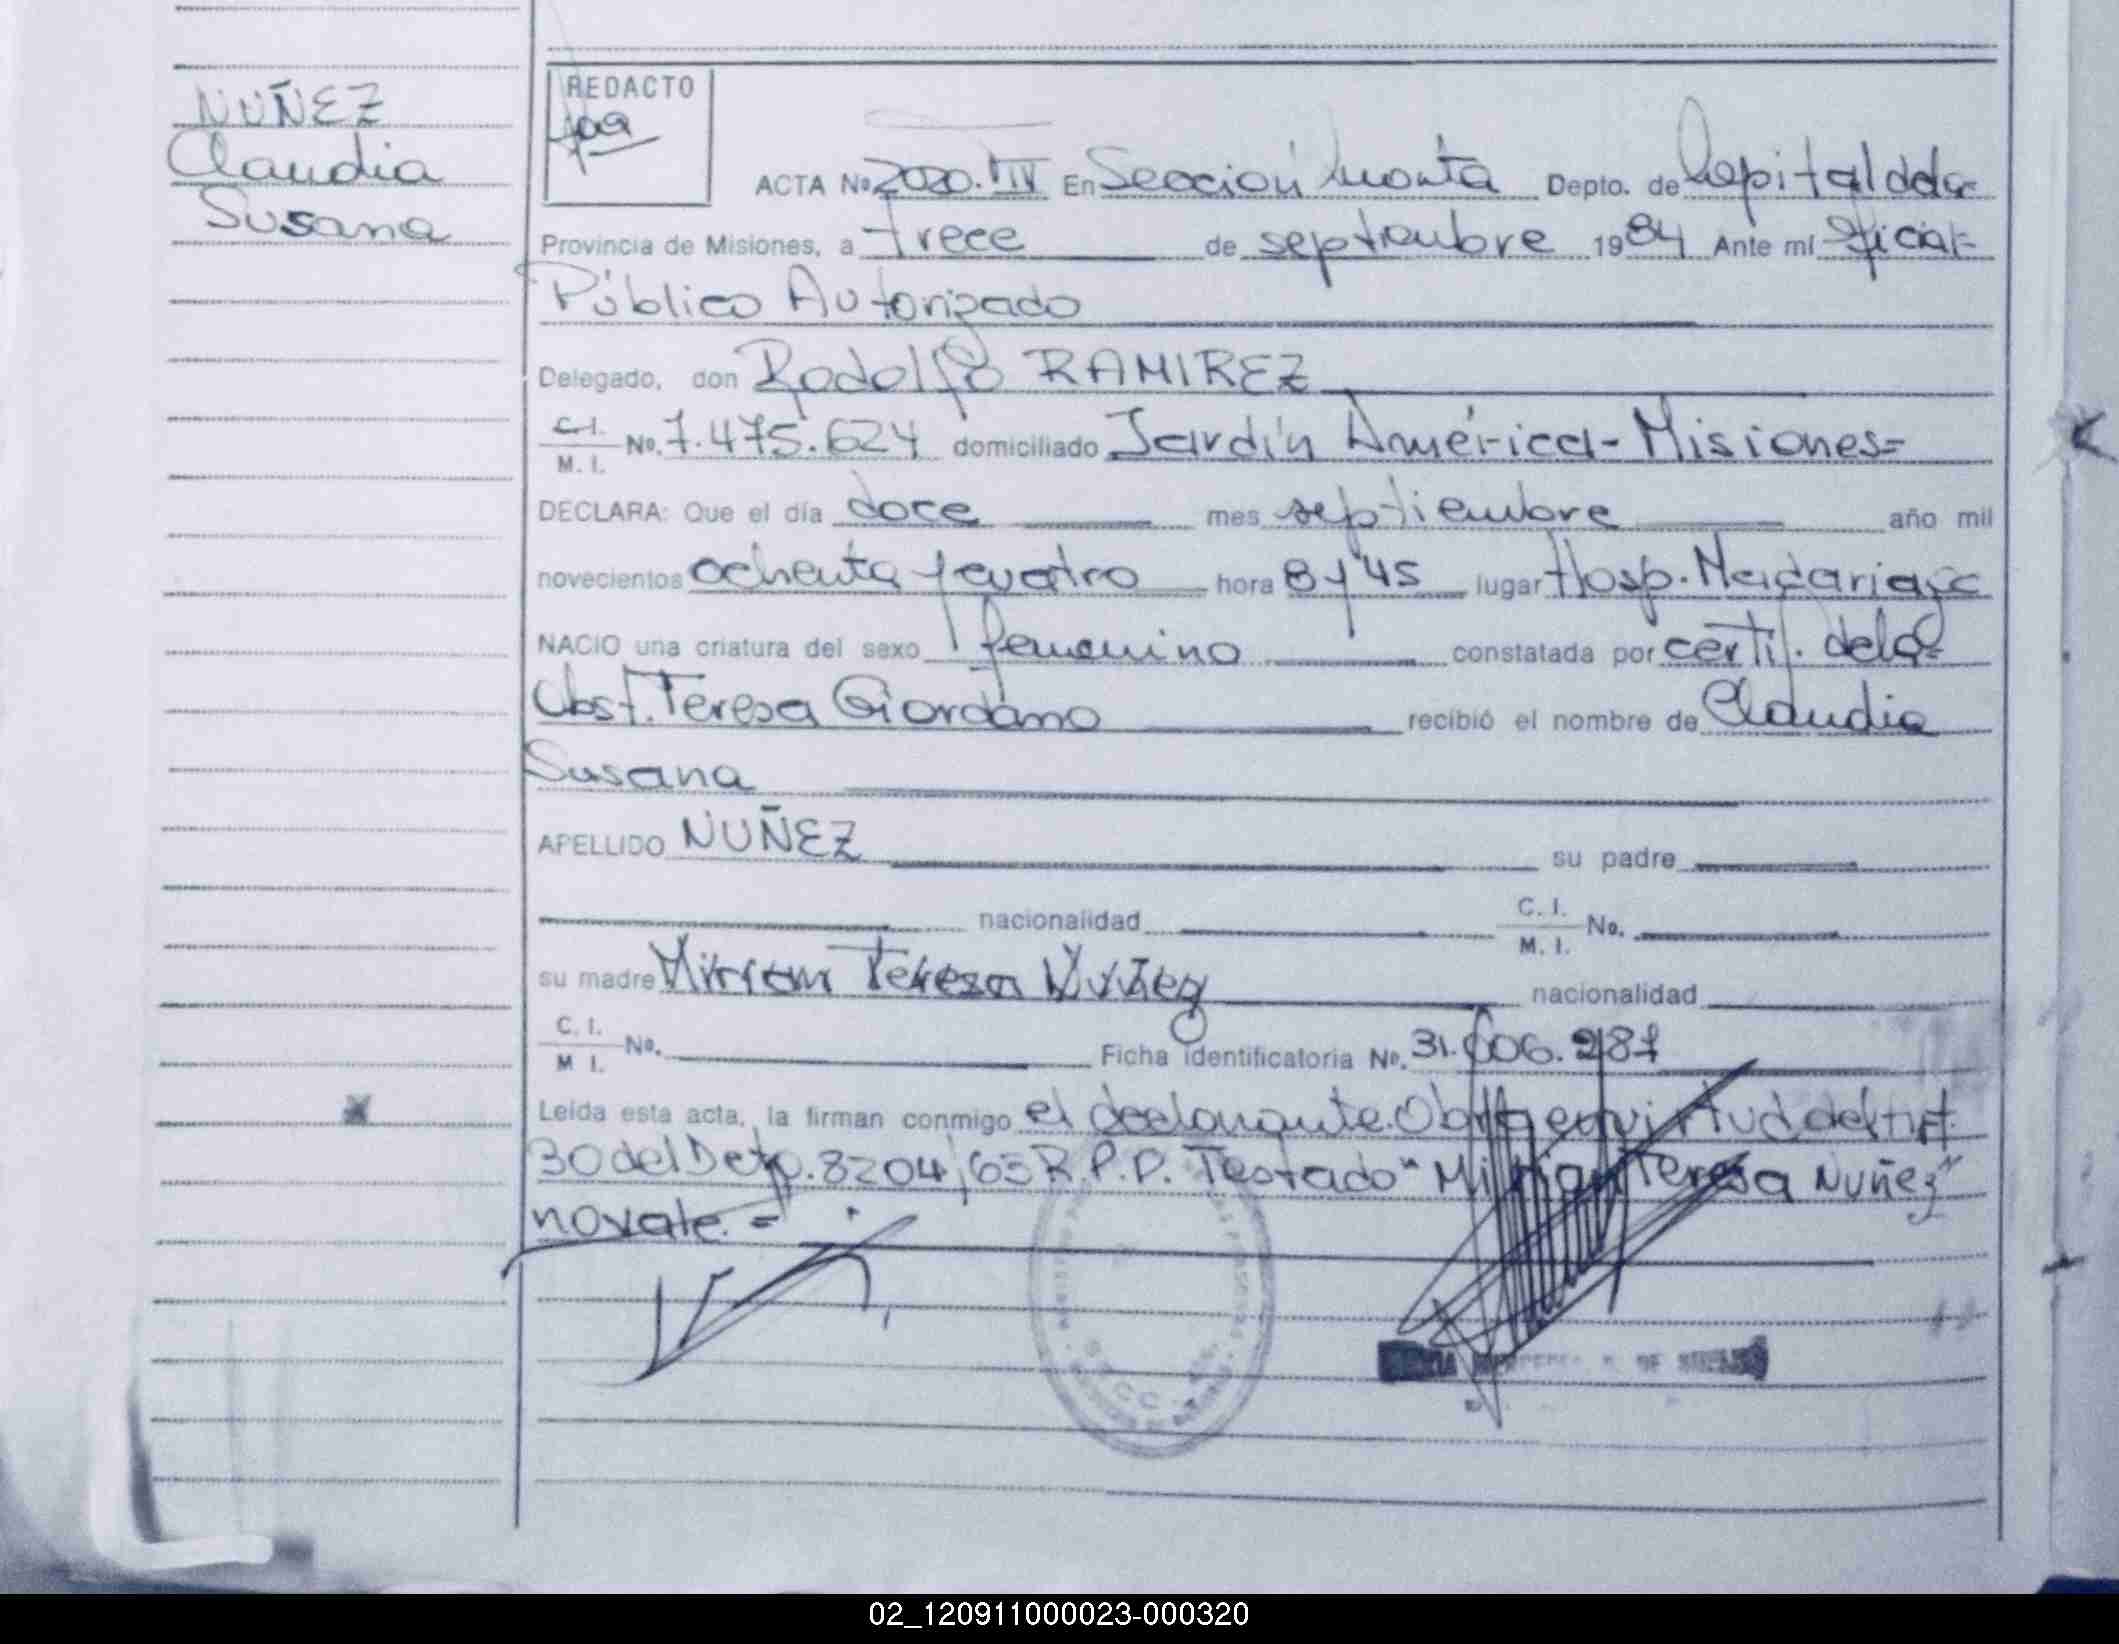 NUÑEZ
Claudia
Susana
REDACTO
ACTA No 2020. En Sección Depto. de Capital de la
Provincia de Misiones, a trece de septiembre 1984 Ante mí Oficial
Público Autorizado
Delegado, don Rodolfo RAMIREZ
C.I. M. I. No. 7.475.624 domiciliado Jardín América - Misiones=
DECLARA: Que el día doce mes septiembre año mil
novecientos ochenta y cuatro hora 8 y 45 lugar Hosp. Madariaga
NACIO una criatura del sexo femenino constatada por certif. de la=
Obst. Teresa Giordano recibió el nombre de Claudia
Susana
APELLIDO NUÑEZ su padre
nacionalidad C. I. M. I. No.
su madre Mirian Teresa Nuñez nacionalidad
C. I. M I. No. Ficha identificatoria No. 31.006.287
Leída esta acta, la firman conmigo el declarante. Obra en virtud del Art.
30 del Deto. 8204/63 R.P.P. Testado "Mirian Teresa Nuñez"
no vale. =
DE
02_120911000023-000320